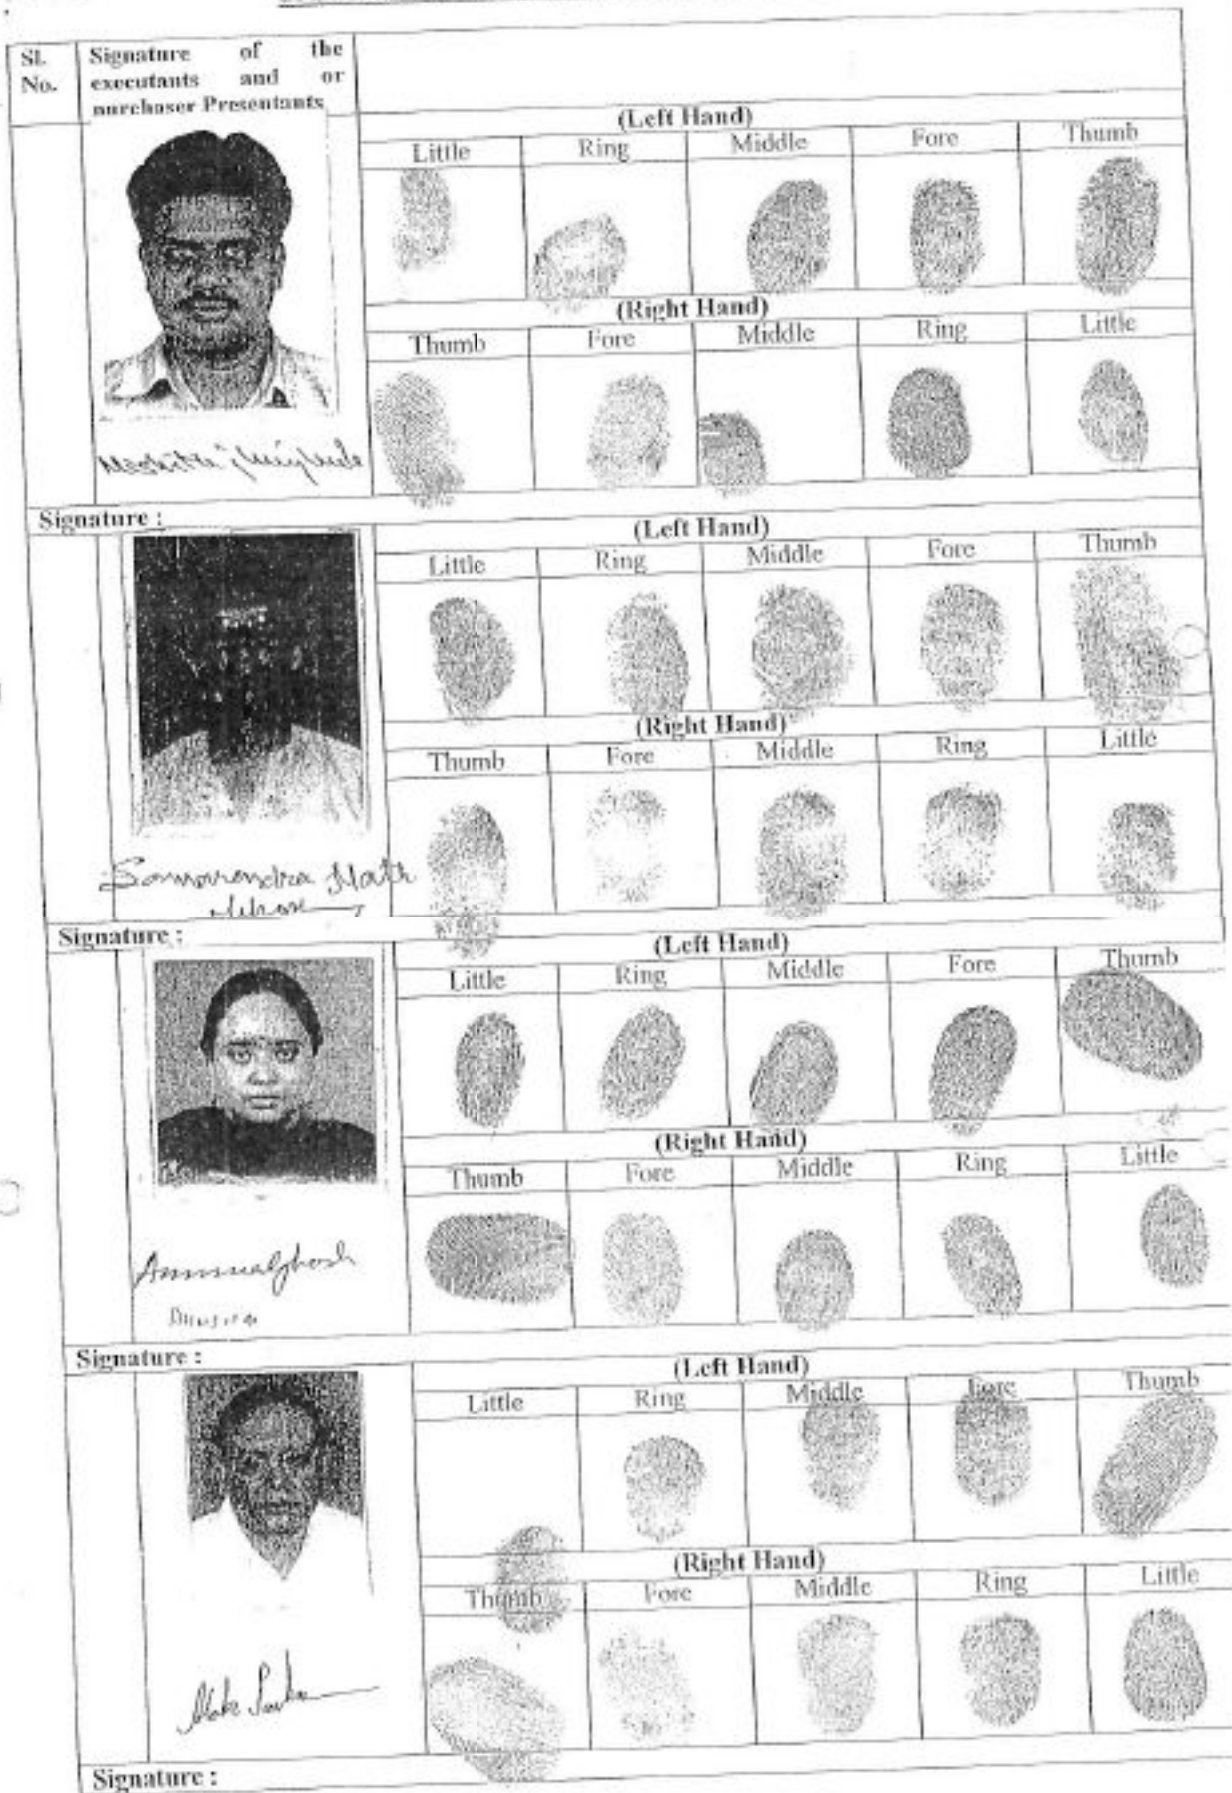 Sl. No.
Signature of the executants and or purchaser Presentants
(Left Hand)
Little Ring Middle Fore Thumb
(Right Hand)
Thumb Fore Middle Ring Little
Signature :
(Left Hand)
Little Ring Middle Fore Thumb
(Right Hand)
Thumb Fore Middle Ring Little
Samarendra Nath
Ghose
Signature :
(Left Hand)
Little Ring Middle Fore Thumb
(Right Hand)
Thumb Fore Middle Ring Little
Signature :
(Left Hand)
Little Ring Middle Fore Thumb
(Right Hand)
Thumb Fore Middle Ring Little
Signature :